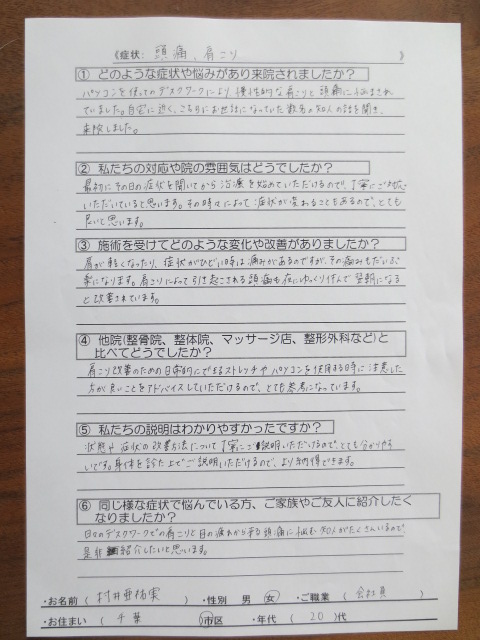 《症状: 頭痛、肩こり 》
① どのような症状や悩みがあり来院されましたか？
パソコンを使ってのデスクワークにより、慢性的な肩こりと頭痛に悩まされ
ていました。自宅に近く、こちらにお世話になっていた数名の知人の話を聞き、
来院しました。
② 私たちの対応や院の雰囲気はどうでしたか？
最初にその日の症状を聞いてから治療を始めていただけるので、丁寧にご対応
いただいていると思います。その時々によって症状が変わることもあるので、とても
良いと思います。
③ 施術を受けてどのような変化や改善がありましたか？
肩が軽くなったり、症状がひどい時は痛みがあるのですが、その痛みもだいぶ
楽になります。肩こりによって引き起こされる頭痛も夜にゆっくり休んで翌朝になる
と改善されています。
④ 他院(整骨院、整体院、マッサージ店、整形外科など)と
比べてどうでしたか？
肩こり改善のための日常的にできるストレッチやパソコンを使用する時に注意した
方が良いことをアドバイスしていただけるので、とても参考になっています。
⑤ 私たちの説明はわかりやすかったですか？
状態や症状の改善方法について丁寧にご説明いただけるので、とても分かりやす
いです。身体を診た上でご説明いただけるので、より納得できます。
⑥ 同じ様な症状で悩んでいる方、ご家族やご友人に紹介したく
なりましたか？
日々のデスクワークでの肩こりと目の疲れから来る頭痛に悩む知人がたくさんいるので
是非紹介したいと思います。
・お名前 ( 村井亜祐実 ) ・性別 男 女 ・ご職業 ( 会社員 )
・お住まい ( 千葉 ) 市区 ・年代 ( 20 )代